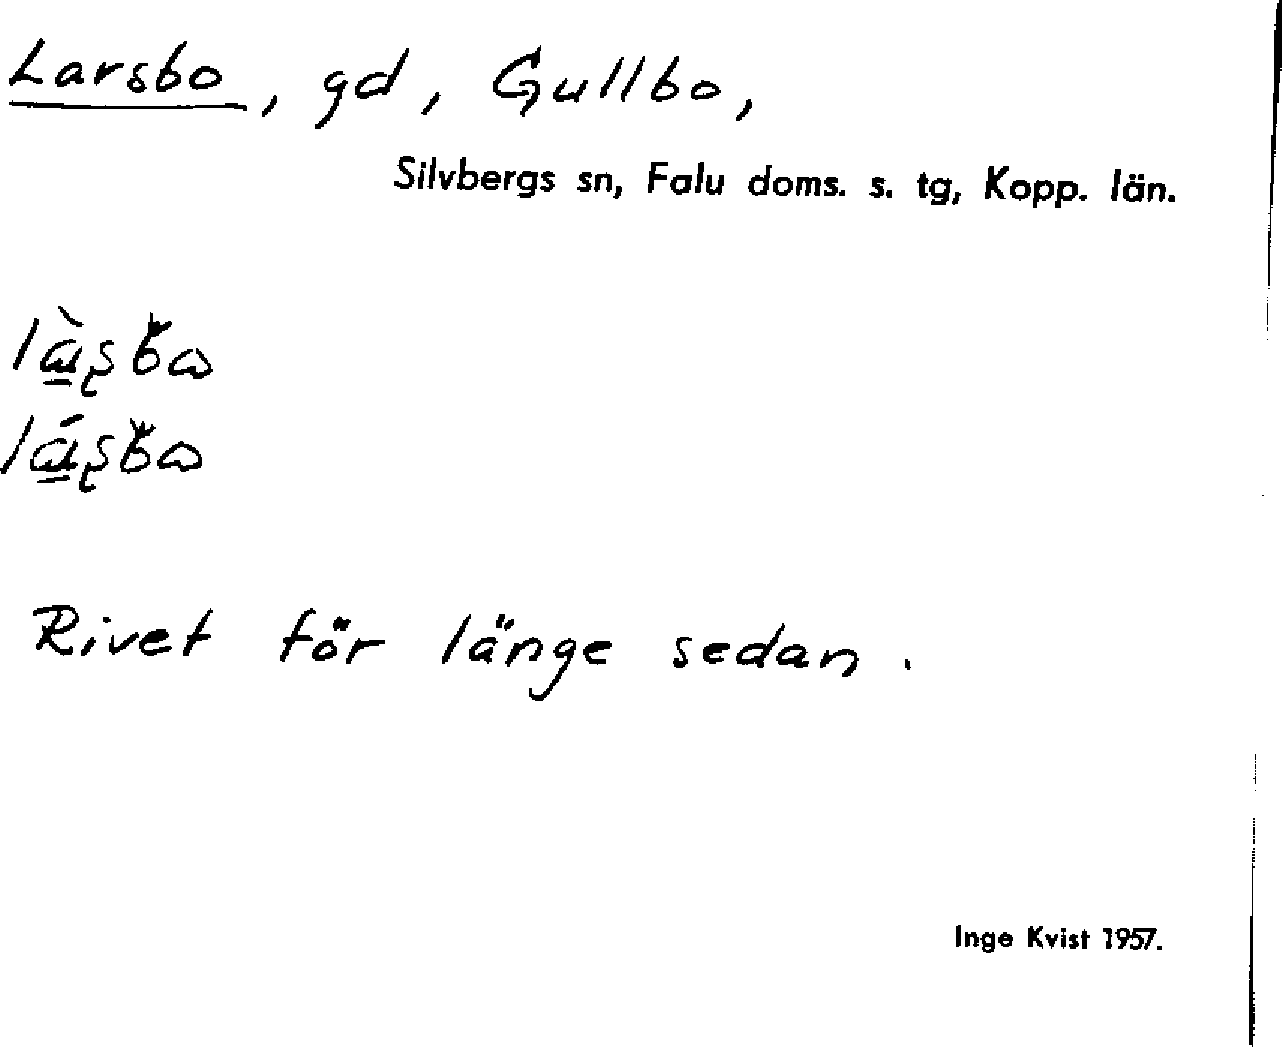 Larsbo, gd, Gullbo,
Silvbergs sn, Falu doms. s. tg, Kopp. län.
Rivet för länge sedan.
Inge Kvist 1957.